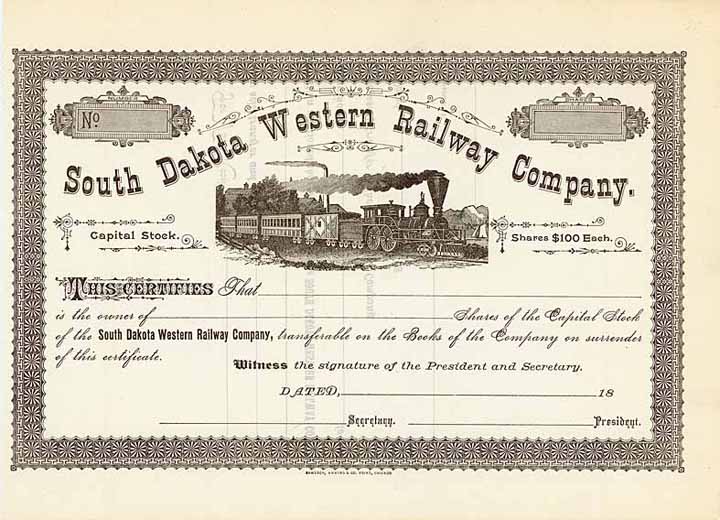 NUMBER
SHARES
No
South Dakota Western Railway Company.
Capital Stock.
Shares $100 Each.
THIS CERTIFIES That
is the owner of Shares of the Capital Stock
of the South Dakota Western Railway Company, transferable on the Books of the Company on surrender
of this certificate.
Witness the signature of the President and Secretary.
DATED, 18
Secretary. President.